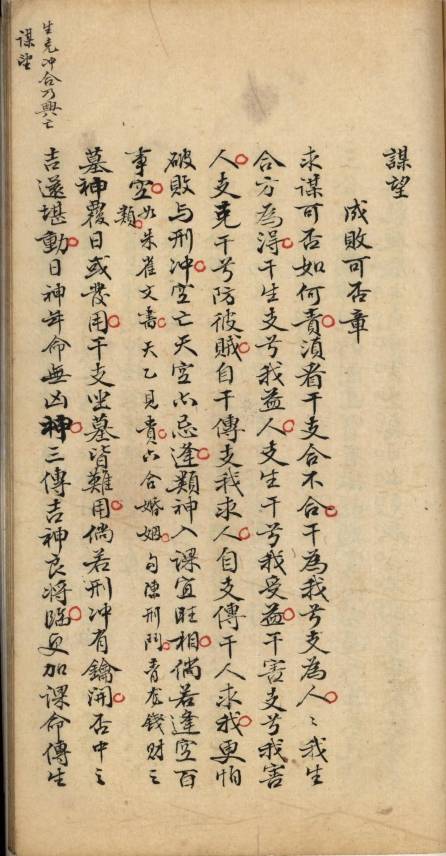 謀望
成敗可否章
求謀可否如何責須看干支合不合干為我兮支為人〻我生
合方為得干生支兮我益人支生干兮我受益干害支兮我害
人支克干兮防彼賊自干傳支我求人自支傳干人求我更怕
破敗与刑冲空亡天空亦忌逢類神入課宜旺相倘若逢空百
事空類如朱雀文書天乙見貴六合婚姻勾陳刑鬥青龙錢財之
墓神覆日或發用干支坐墓皆難用倘若刑冲有鑰開否中之
吉還堪動日神年命無凶神三傳吉神良將臨更加課命傳生
生克冲合乃興亡
謀望